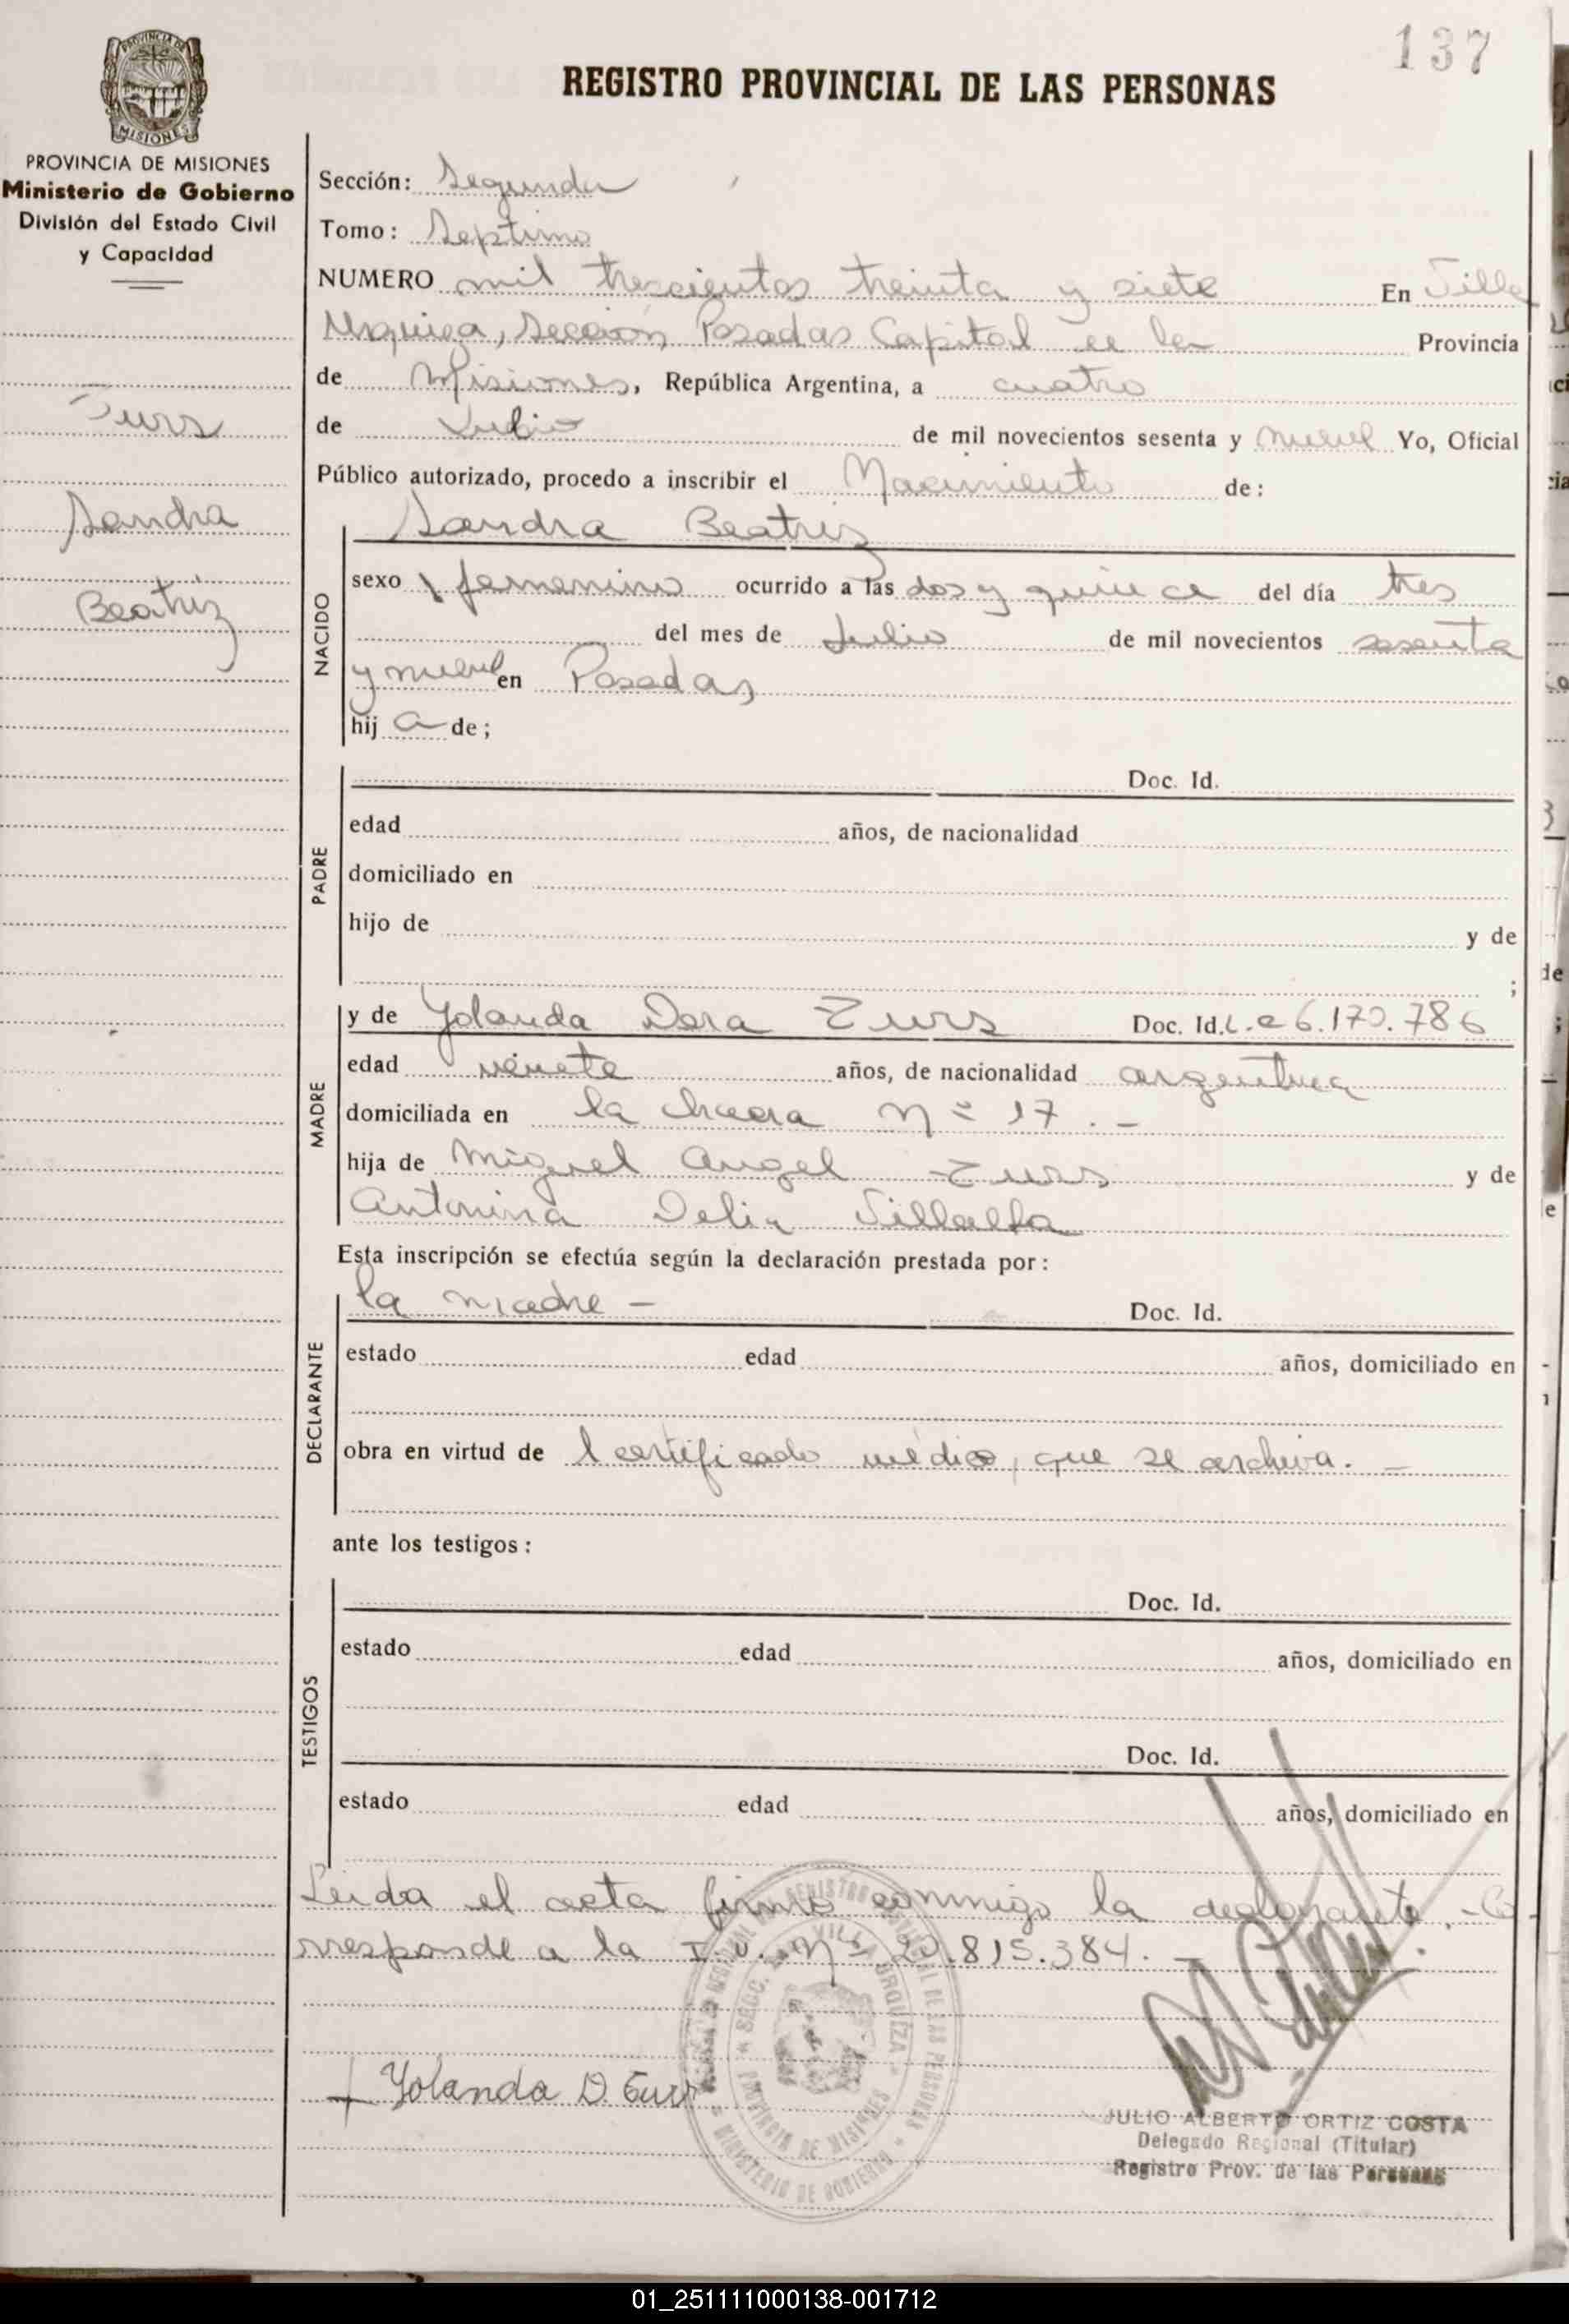 137
REGISTRO PROVINCIAL DE LAS PERSONAS
PROVINCIA DE MISIONES
PROVINCIA DE MISIONES
Ministerio de Gobierno
División del Estado Civil
y Capacidad
Sección: Segunda
Tomo: Septimo
NUMERO mil trescientos treinta y siete En Villa
Urquiza, Sección Posadas Capital de la Provincia
de Misiones, República Argentina, a cuatro
de Julio de mil novecientos sesenta y nueve Yo, Oficial
Público autorizado, procedo a inscribir el Nacimiento de:
Zurs
Sandra
Beatriz
NACIDO
Sandra Beatriz
sexo femenino ocurrido a las dos y quince del día tres
del mes de Julio de mil novecientos sesenta
y nueve en Posadas
hij a de;
PADRE
Doc. Id.
edad años, de nacionalidad
domiciliado en
hijo de y de
;
MADRE
y de Yolanda Dora Zurs Doc. Id. L.C 6.170.786
edad veinte años, de nacionalidad argentina
domiciliada en la chacra Nº 17.-
hija de Miguel Angel Zurs y de
Antonina Delia Villalba
Esta inscripción se efectúa según la declaración prestada por:
DECLARANTE
la madre - Doc. Id.
estado edad años, domiciliado en
obra en virtud de l certificado médico, que se archiva. -
ante los testigos:
TESTIGOS
Doc. Id.
estado edad años, domiciliado en
Doc. Id.
estado edad años, domiciliado en
Leida el acta firma conmigo la declarante.- Co
rresponde a la I.U. Nº 20.815.384. -
SECC. VILLA URQUIZA
PROVINCIA DE MISIONES
MINISTERIO DE GOBIERNO
Yolanda D. Zurs
JULIO ALBERTO ORTIZ COSTA
Delegado Regional (Titular)
Registro Prov. de las Personas
01_251111000138-001712